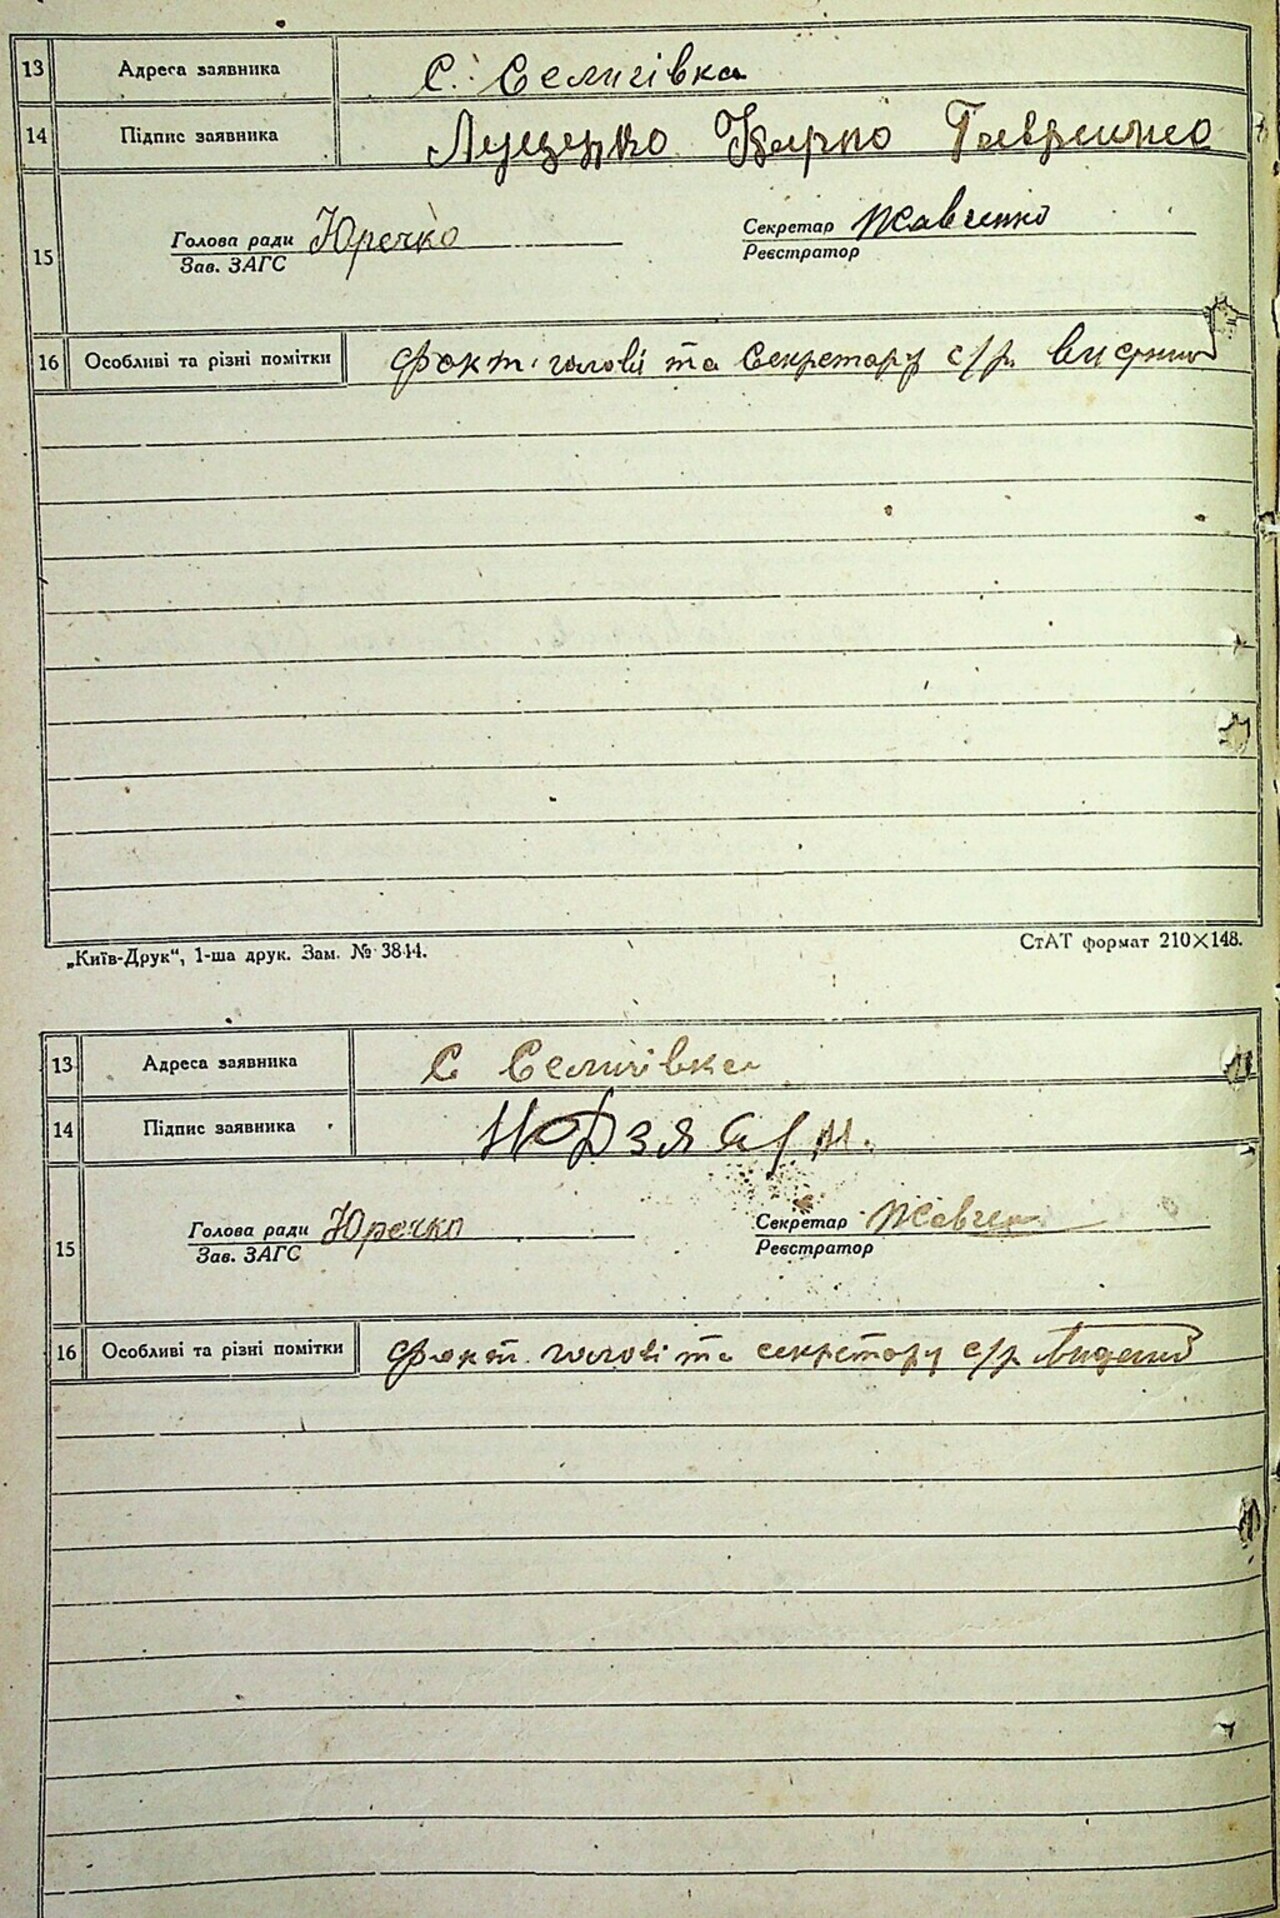 13 Адреса заявника С. Селичівка
14 Підпис заявника Луценко Карпо
15 Голова ради Юречко Секретар Жавченко
Зав. ЗАГС Реєстратор
16 Особливі та різні помітки Факт. голові та секретару с/р.
„Київ-Друк“, 1-ша друк. Зам. № 3844. СтАТ формат 210×148.
13 Адреса заявника С Селичівка
14 Підпис заявника
15 Голова ради Юречко Секретар
Зав. ЗАГС Реєстратор
16 Особливі та різні помітки Факт. голові та секретару с/р.